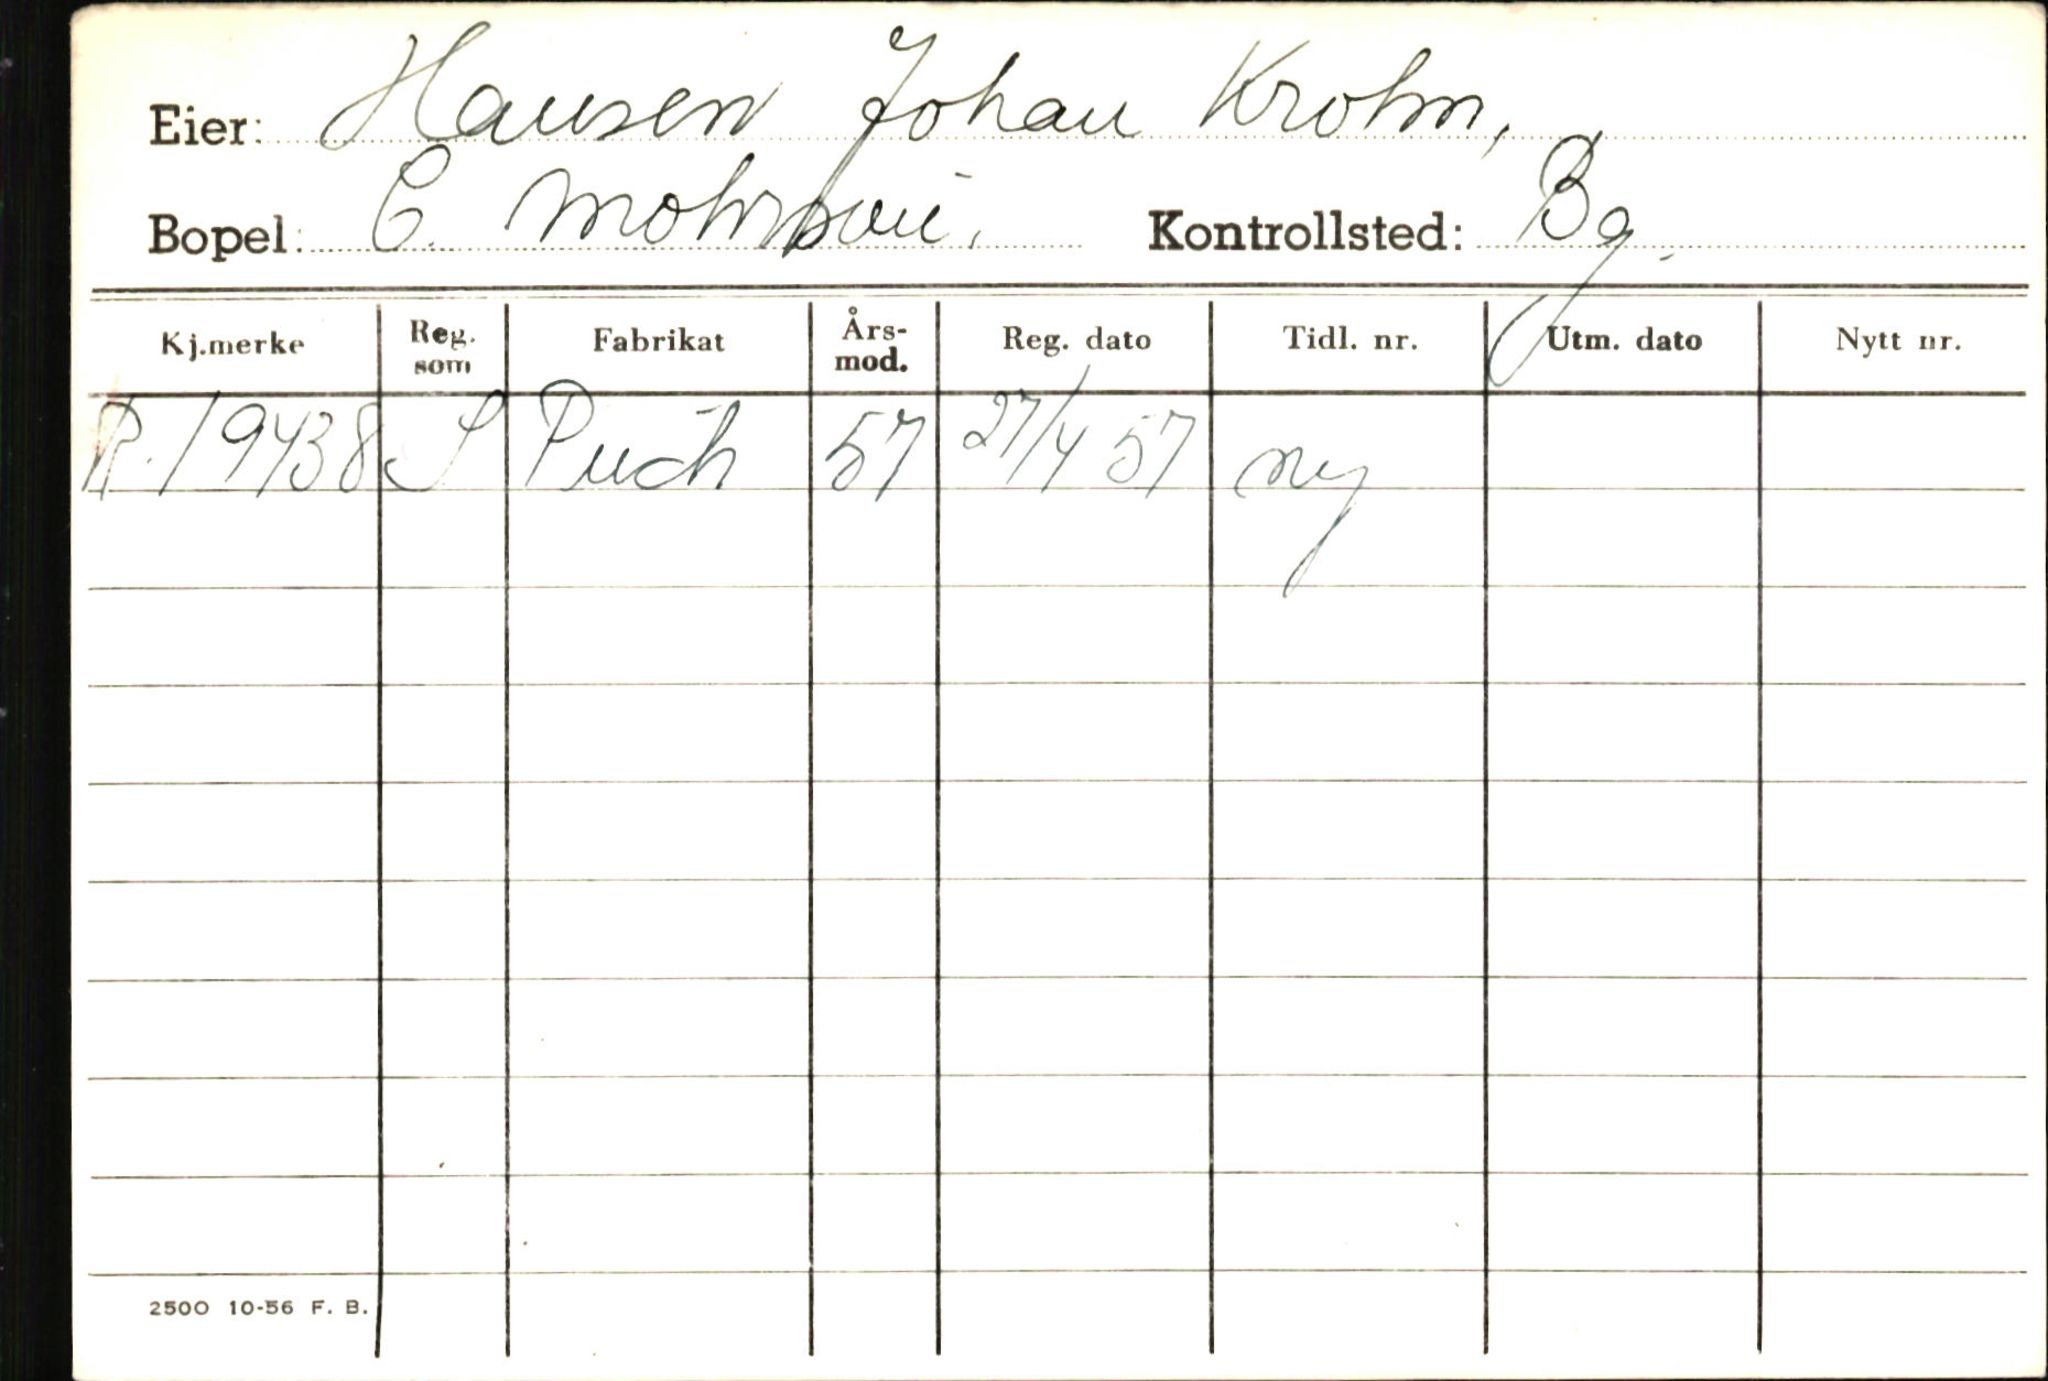 Eier: Hansen Johan Krohn,
Bopel: C. Mohrsvei. Kontrollsted: Bg.
Kj.merke Reg. som Fabrikat Års-mod. Reg. dato Tidl. nr. Utm. dato Nytt nr.
R. 19438 S Puch 57 27/4 57 ny
2500 10-56 F. B.